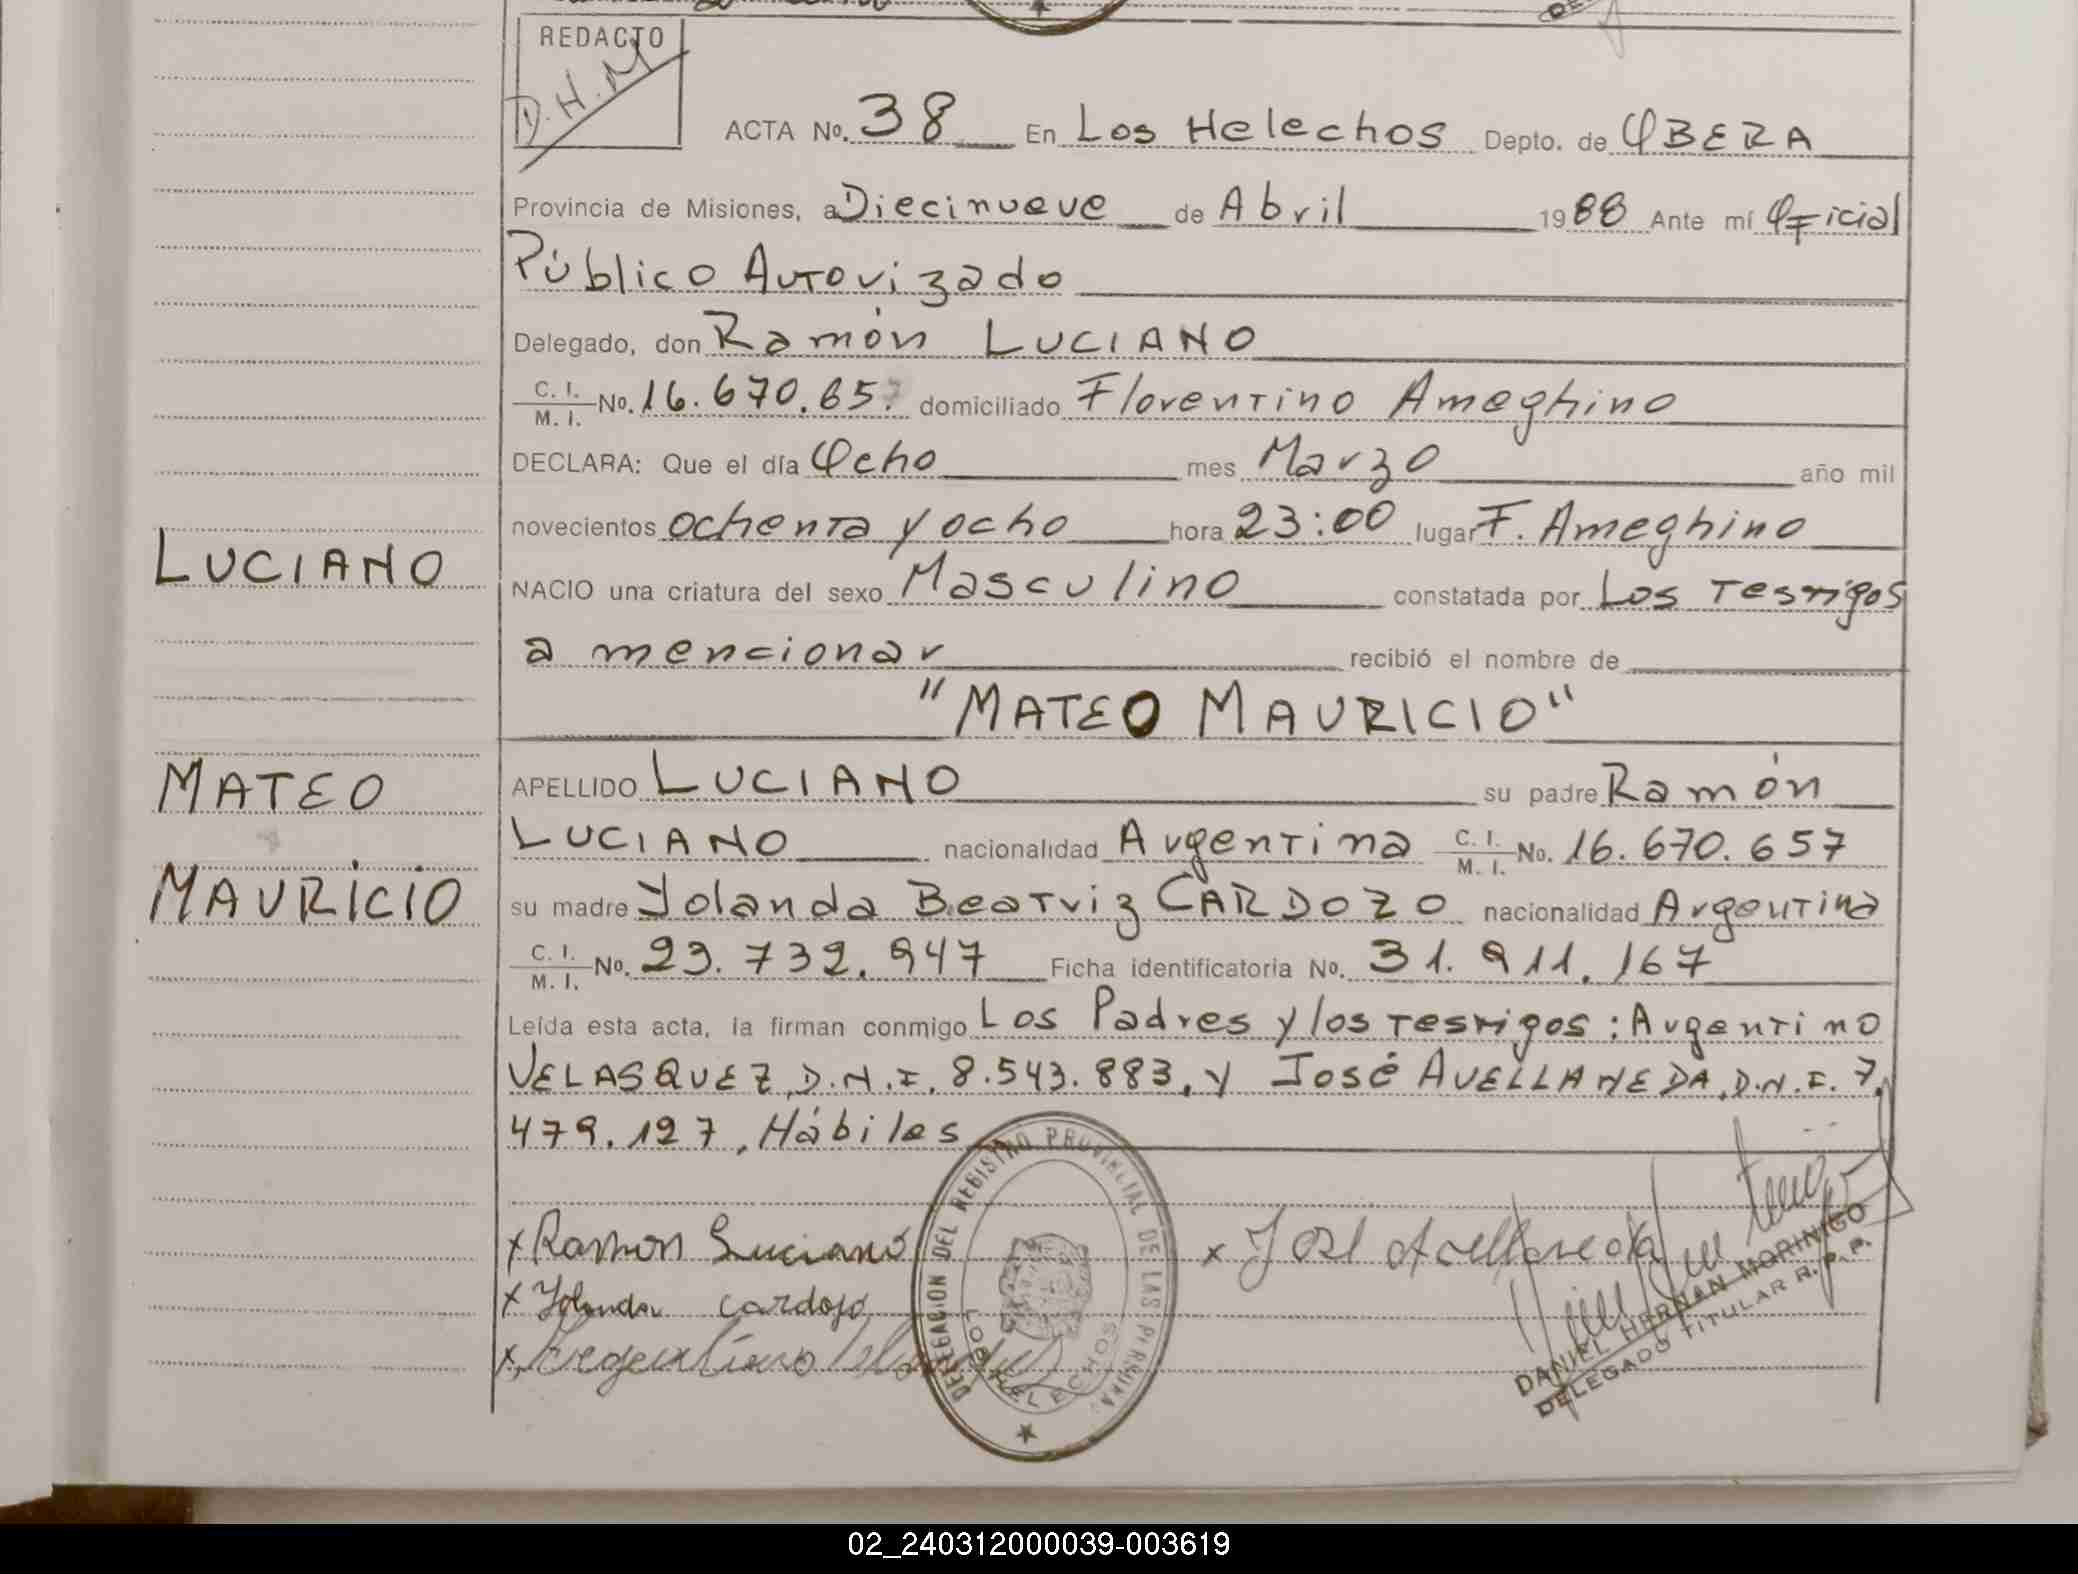 REDACTO
D.H.M
ACTA No. 38 En Los Helechos Depto. de OBERA
Provincia de Misiones, a Diecinueve de Abril 1988 Ante mí Oficial
Público Autorizado
Delegado, don Ramón LUCIANO
C. I. / M. I. No. 16.670.657 domiciliado Florentino Ameghino
DECLARA: Que el día Ocho mes Marzo año mil
novecientos ochenta y ocho hora 23:00 lugar F. Ameghino
LUCIANO
NACIO una criatura del sexo Masculino constatada por Los Testigos
a mencionar recibió el nombre de
"MATEO MAURICIO"
MATEO
APELLIDO LUCIANO su padre Ramón
LUCIANO nacionalidad Argentina C. I. / M. I. No. 16.670.657
MAURICIO
su madre Yolanda Beatriz CARDOZO nacionalidad Argentina
C. I. / M. I. No. 23.732.947 Ficha identificatoria No. 31.911.167
Leída esta acta, la firman conmigo Los Padres y los testigos: Argentino
VELASQUEZ, D.N.I. 8.543.883, y José AVELLANEDA, D.N.I. 7.
479.127, Hábiles
x Ramon Luciano
x Yolanda Cardozo
x Argentino
x José Avellaneda
DELEGACION DEL REGISTRO PROVINCIAL DE LAS PERSONAS
LOS HELECHOS
DANIEL HERNAN MORINIGO
DELEGADO TITULAR R.P.P.
02_240312000039-003619